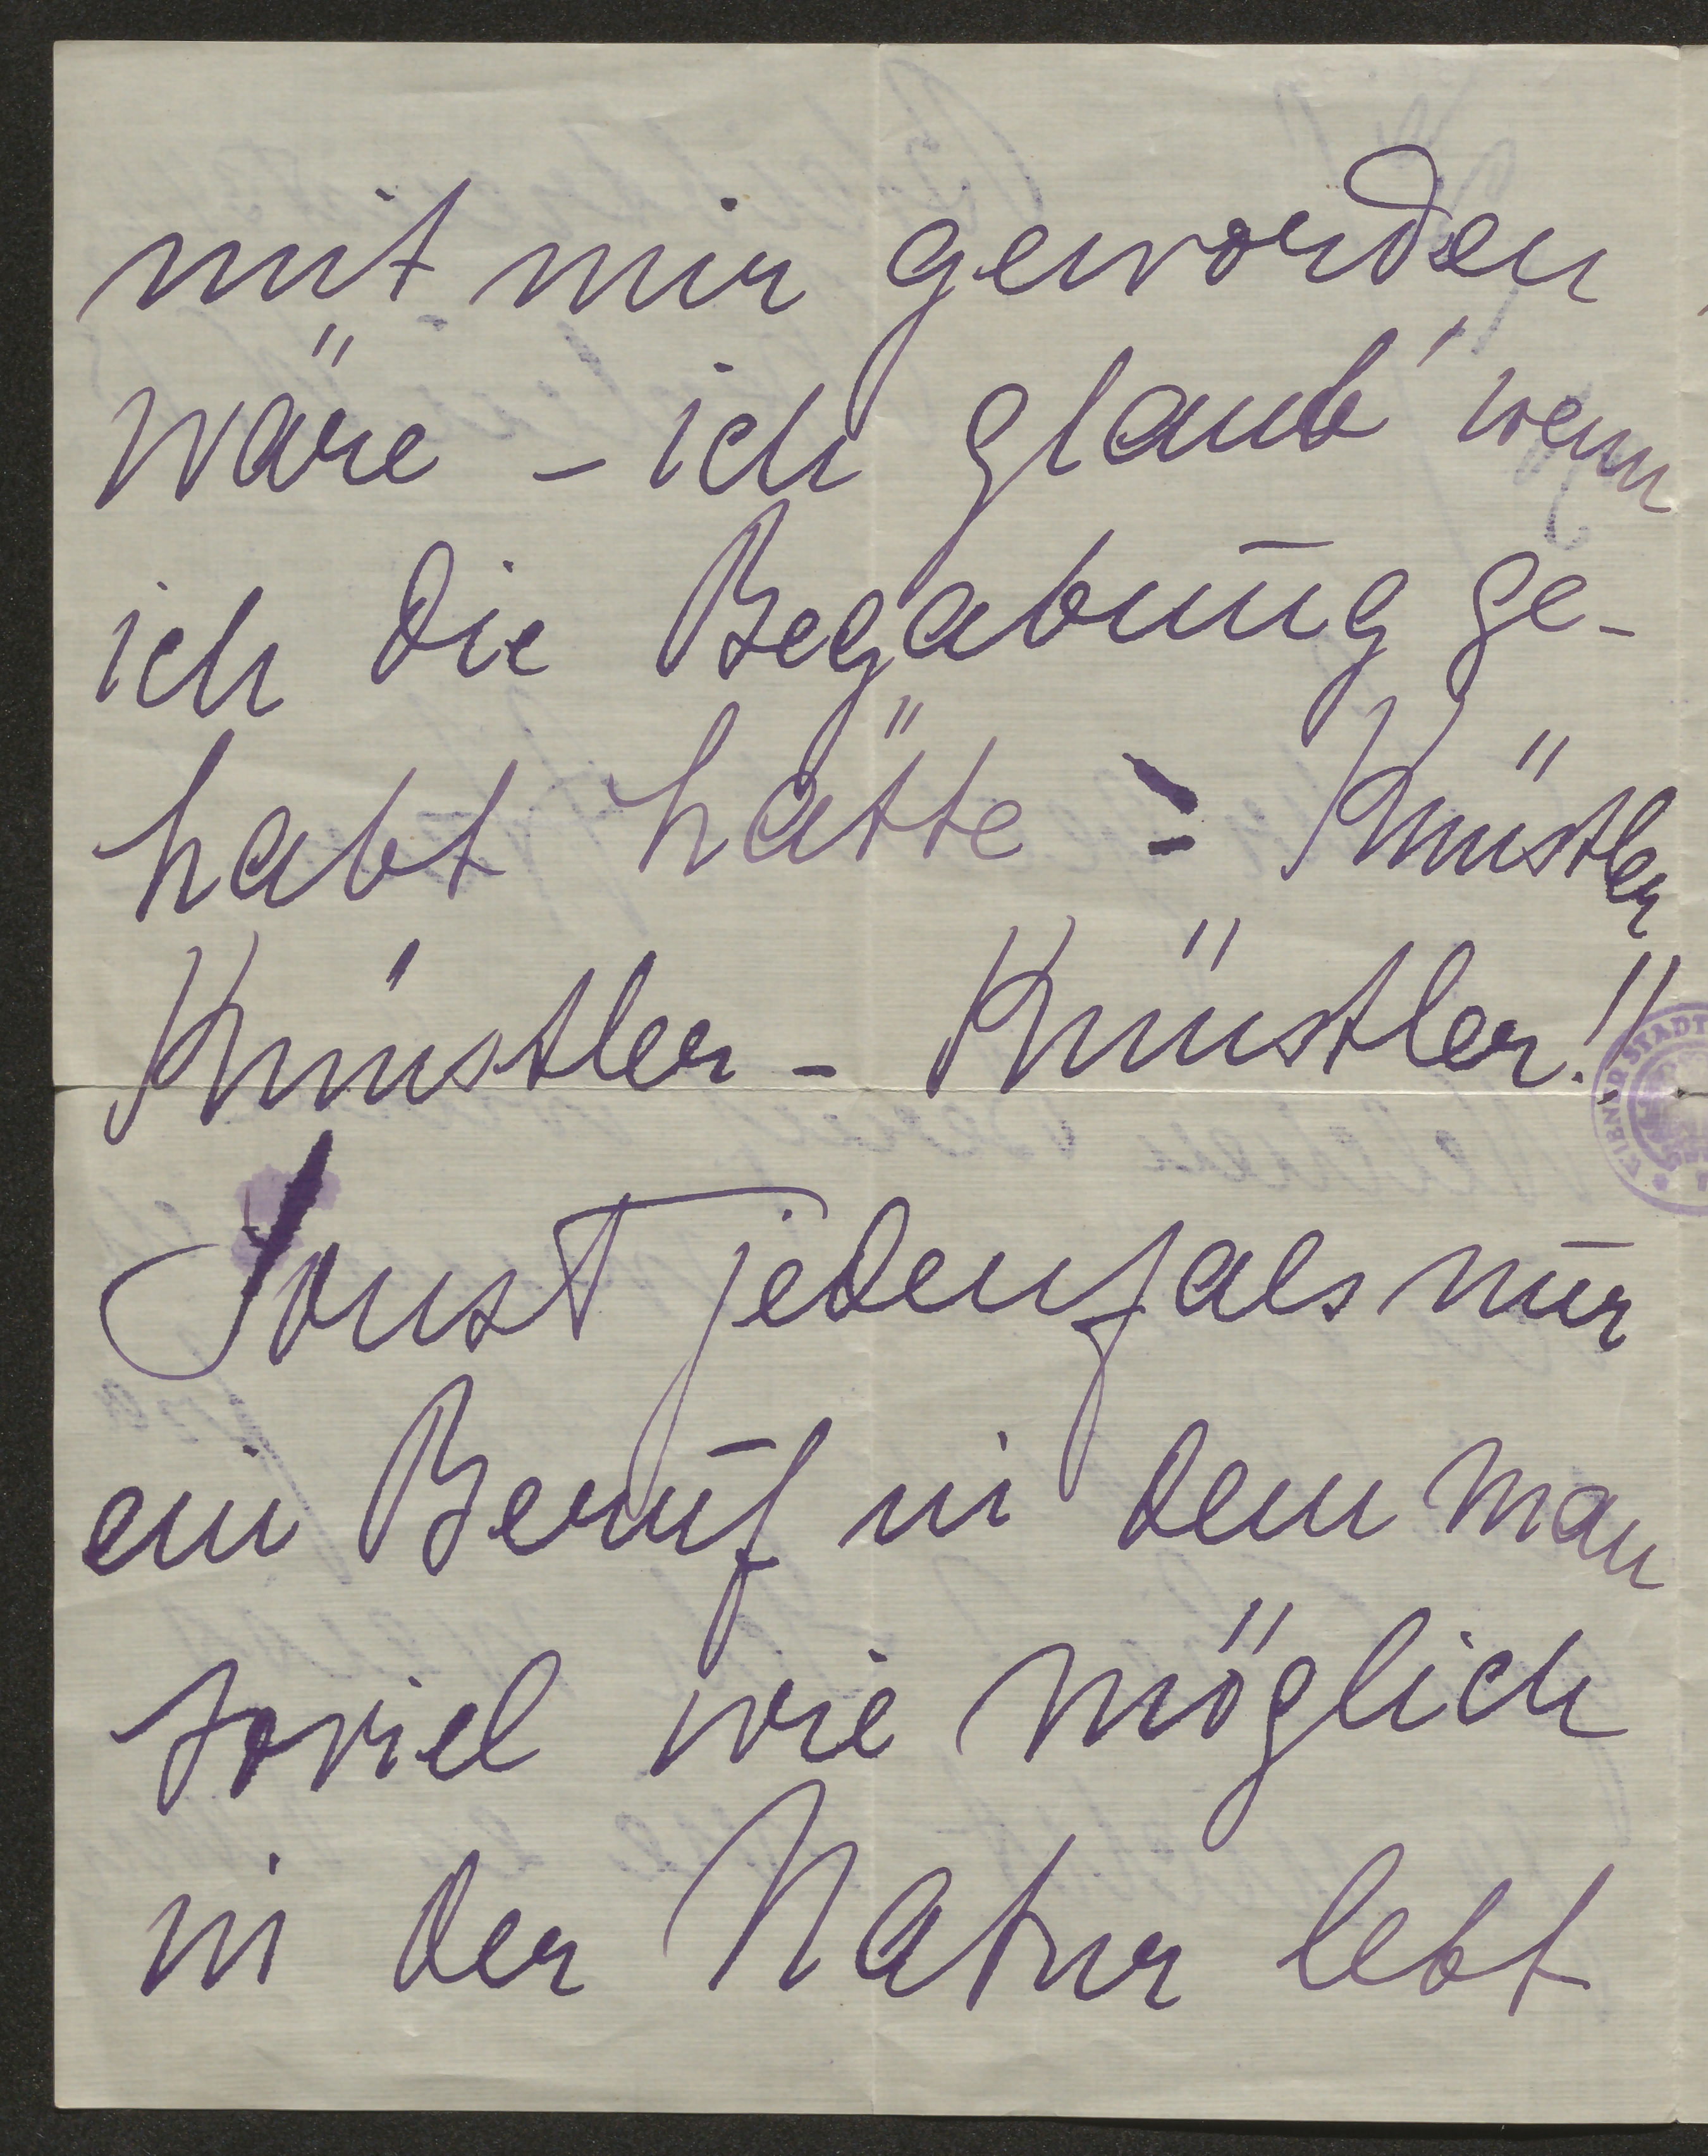 mit mir geworden
wäre – ich glaub' wenn
ich die Begabung ge-
habt hätte : Künstler
Künstler – Künstler!!
Sonst jedenfals nur
ein Beruf in dem man
soviel wie möglich
in der Natur lebt